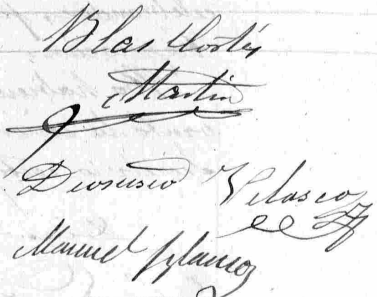 Blas Cortés
Martin
Dioscisco Velasco
Manuel Blanco